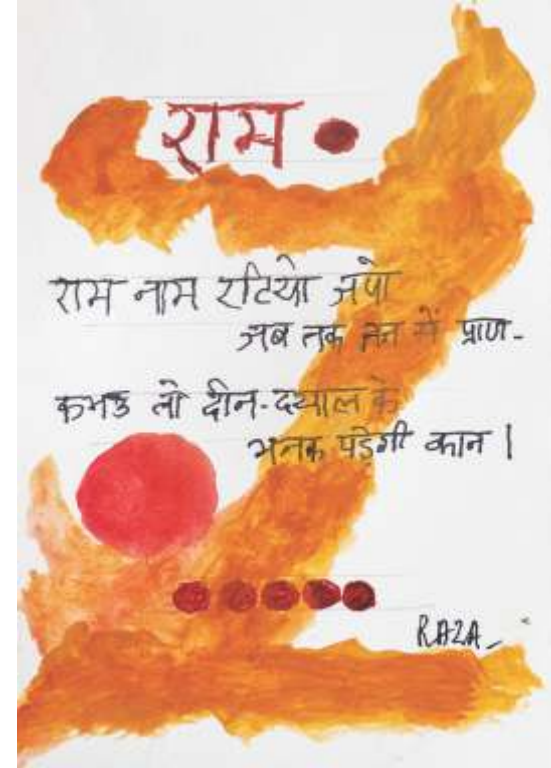 राम
राम नाम रटियो जपो
जब तक तन में प्राण-
कभउ तो दीन-दयाल के
भनक पड़ेगी कान।
RAZA